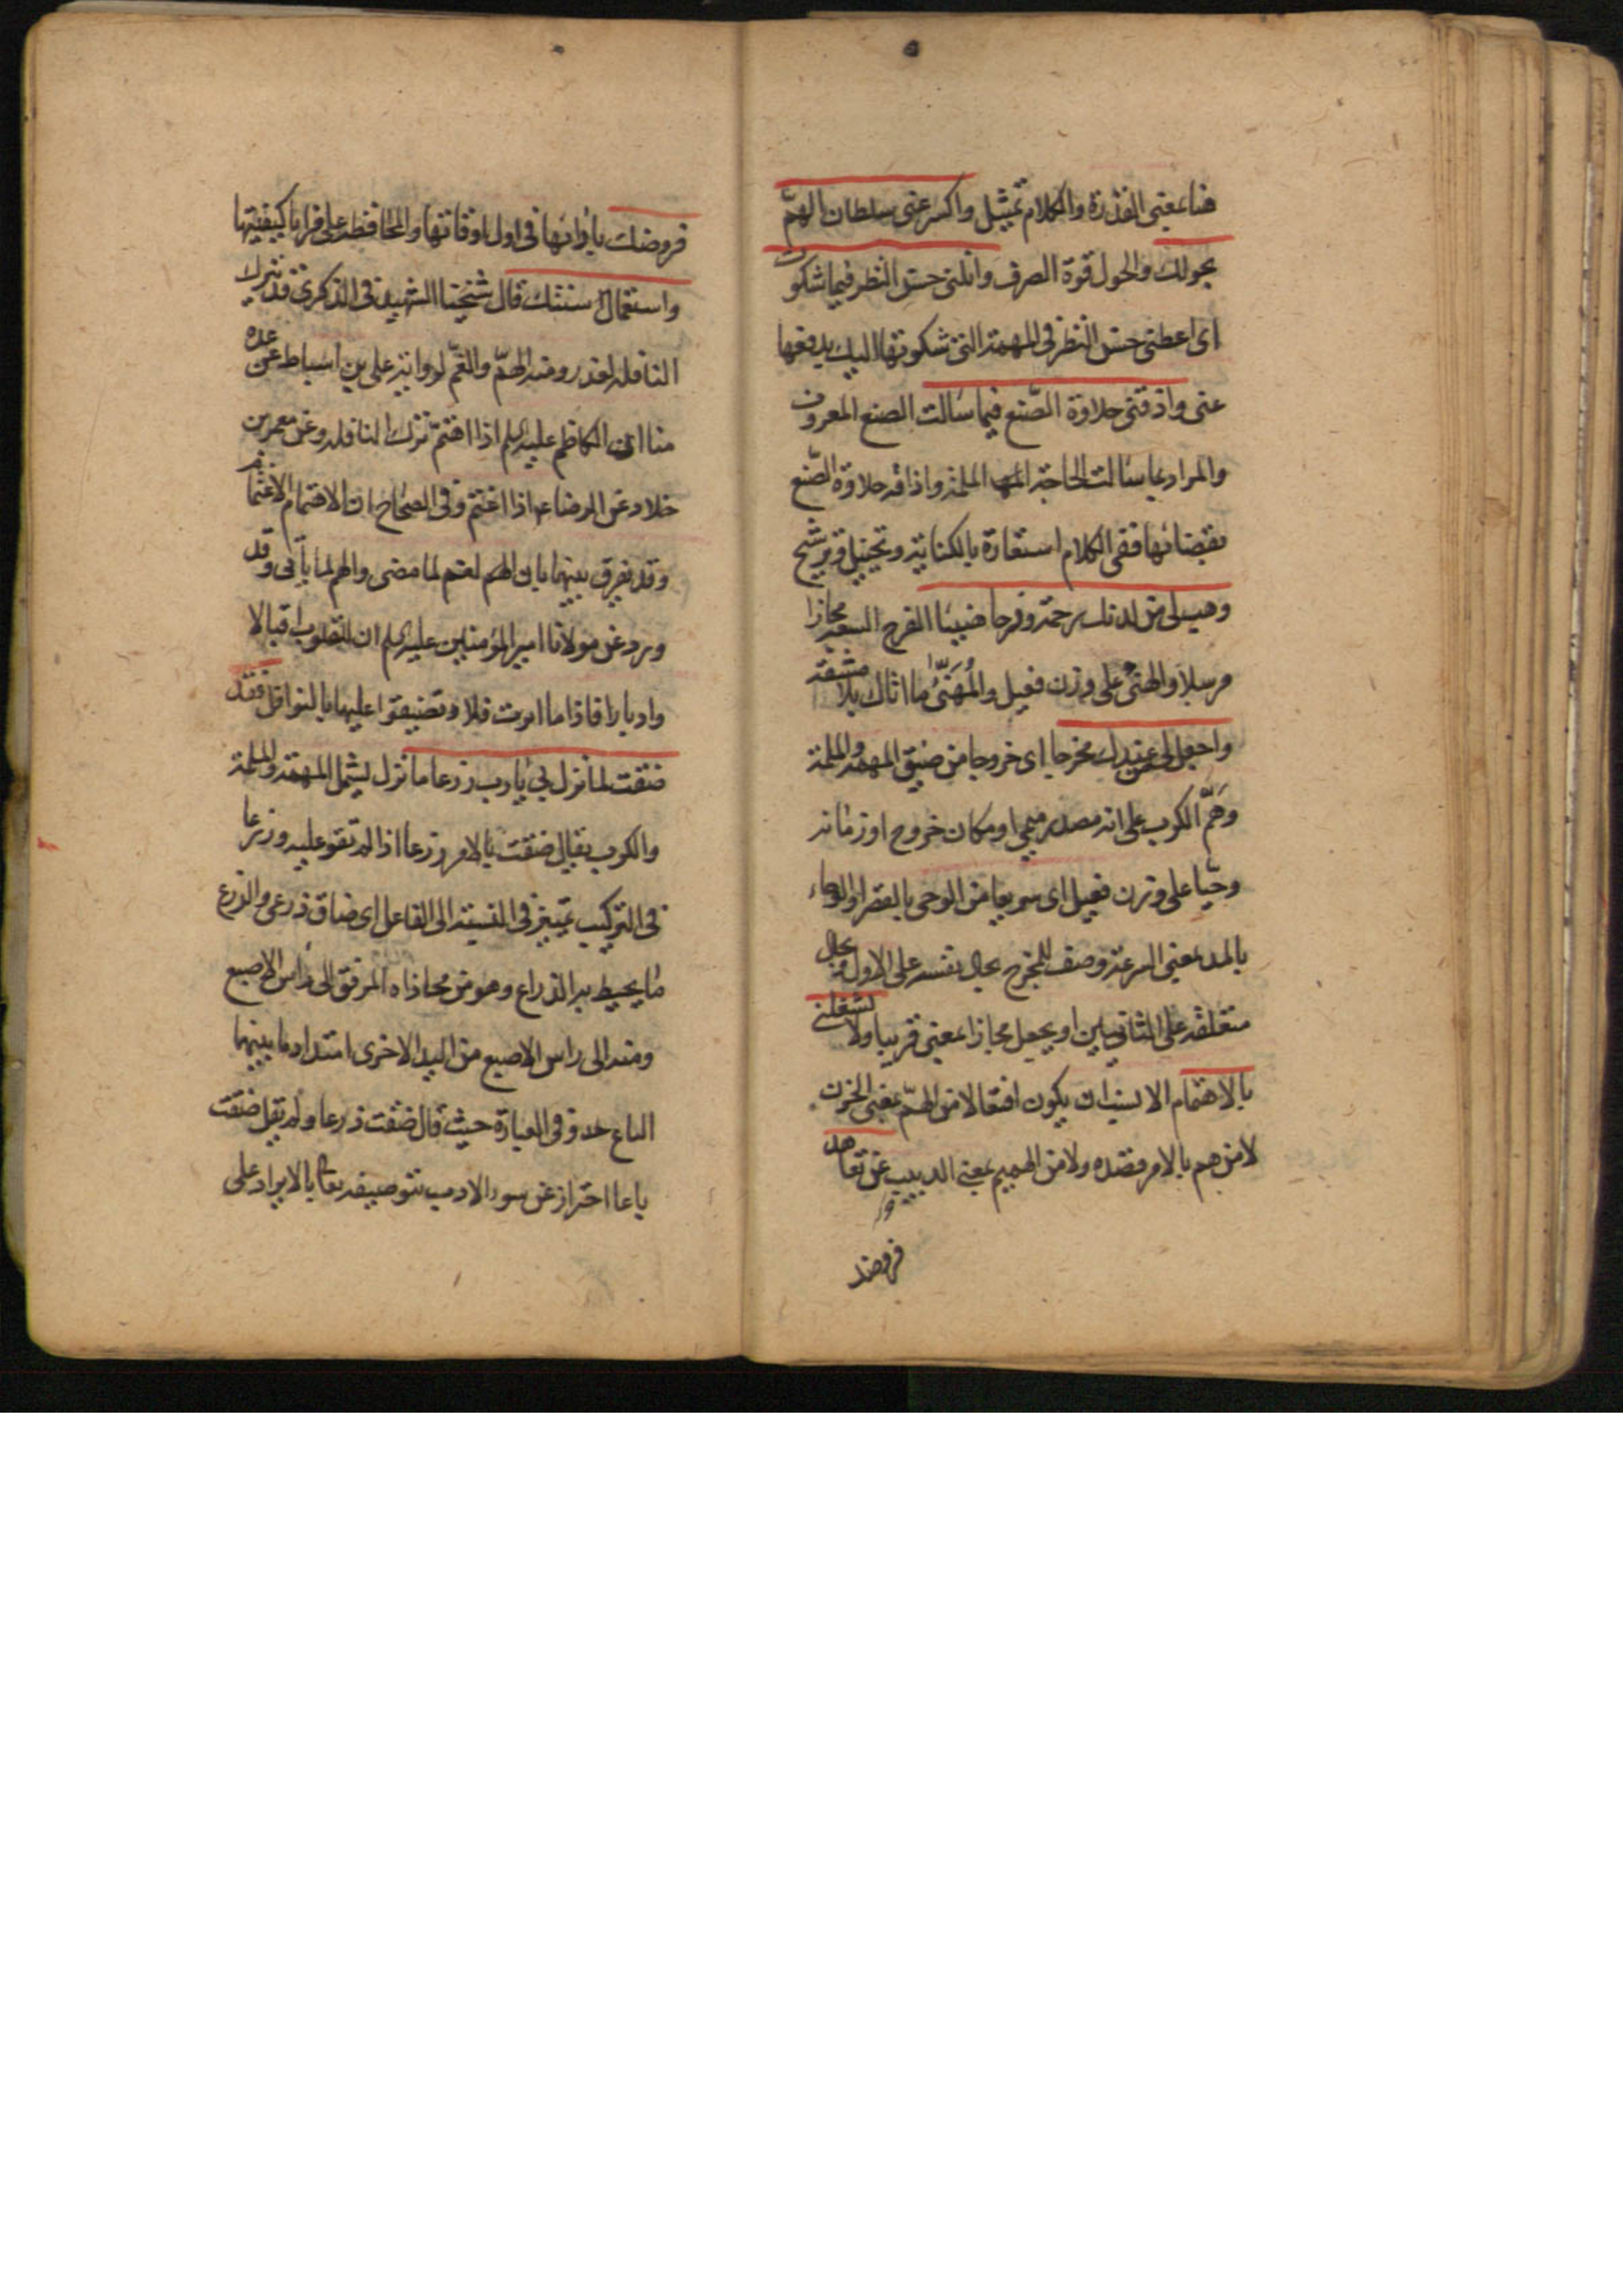 هنا بمعنى القدرة والكلام تمثيل واكسر عنى سلطان الهمّ
بحولك والحول قوة الصرف وانلنى حسن النظر فيما شكوت
اى اعطنى حسن النظر فى المهمة التى شكوتها اليك بدفعها
عنى واذقنى حلاوة الصّنع فيما سالت الصنع المعروف
والمراد بما سالت الحاجة الملمة واذاقه حلاوة الصّنع
بقضائها ففى الكلام استعارة بالكناية وتخييل وترشيح
وهب لى من لدنك رحمة وفرجا هنيئا الفرج مجازا
مرسلا والهنئ على وزن فعيل والمُهَنَّئُ ما اتاك بلا مشقة
واجعل لى من عندك مخرجا اى خروجا من ضيق المهمة والملمة
وهَمَّ الكرب على انه مصدر ميمى او مكان خروج او زمانه
وحيّا على وزن فعيل اى سريعا من الوحى بالقصر او الوحاء
بالمد بمعنى السرعة وصف للمخرج بحال نفسه على الاول وبحال
متعلقه على الثانيين او يجعل مجازا بمعنى قريبا ولا تشغلنى
بالاهتمام الانسب ان يكون افتعالا من الهمّ بمعنى الحزن
لا من هم بالامر قصده ولا من الهميم بمعنى الدبيب عن تعاهد
فروضك
فروضك بادائها فى اول اوقاتها والمحافظة على مزايا كيفيتها
واستعمال سنتك قال شيخنا الشهيد فى الذكرى قد تترك
النافلة لعذر ومنه الهمّ والغمّ لرواية على بن اسباط عن عدة
منا ان الكاظم عليه السلم اذا اهتمّ ترك النافلة وعن معمر بن
خلاد عن الرضا ع اذا اغتم وفى الصحاح ان الاهتمام الاغتمام
وقد يفرق بينهما بان الغم لما مضى والهم لما ياتى وقد
ورد عن مولانا امير المؤمنين عليه السلم ان للقلوب اقبالا
وادبارا فاذا ما ادبرت فلا تضيقوا عليها بالنوافل فقد
ضقت لما نزل بى يا رب ذرعا ما نزل يشمل المهمة والملمة
والكرب يقال ضقت بالامر ذرعا اذا لم تقو عليه وذرعا
فى التركيب تمييز فى النسبة الى الفاعل اى ضاق ذرعى والذرع
ما يحيط به الذراع وهو من محاذاه المرفق الى راس الاصبع
ومنه الى راس الاصبع من اليد الاخرى امتداد ما بينهما
الباع حذف فى العبارة حيث قال ضقت ذرعا ولم يقل ضقت
باعا احتراز عن سوء الادب بتوصيفه تعالى بالايراد على